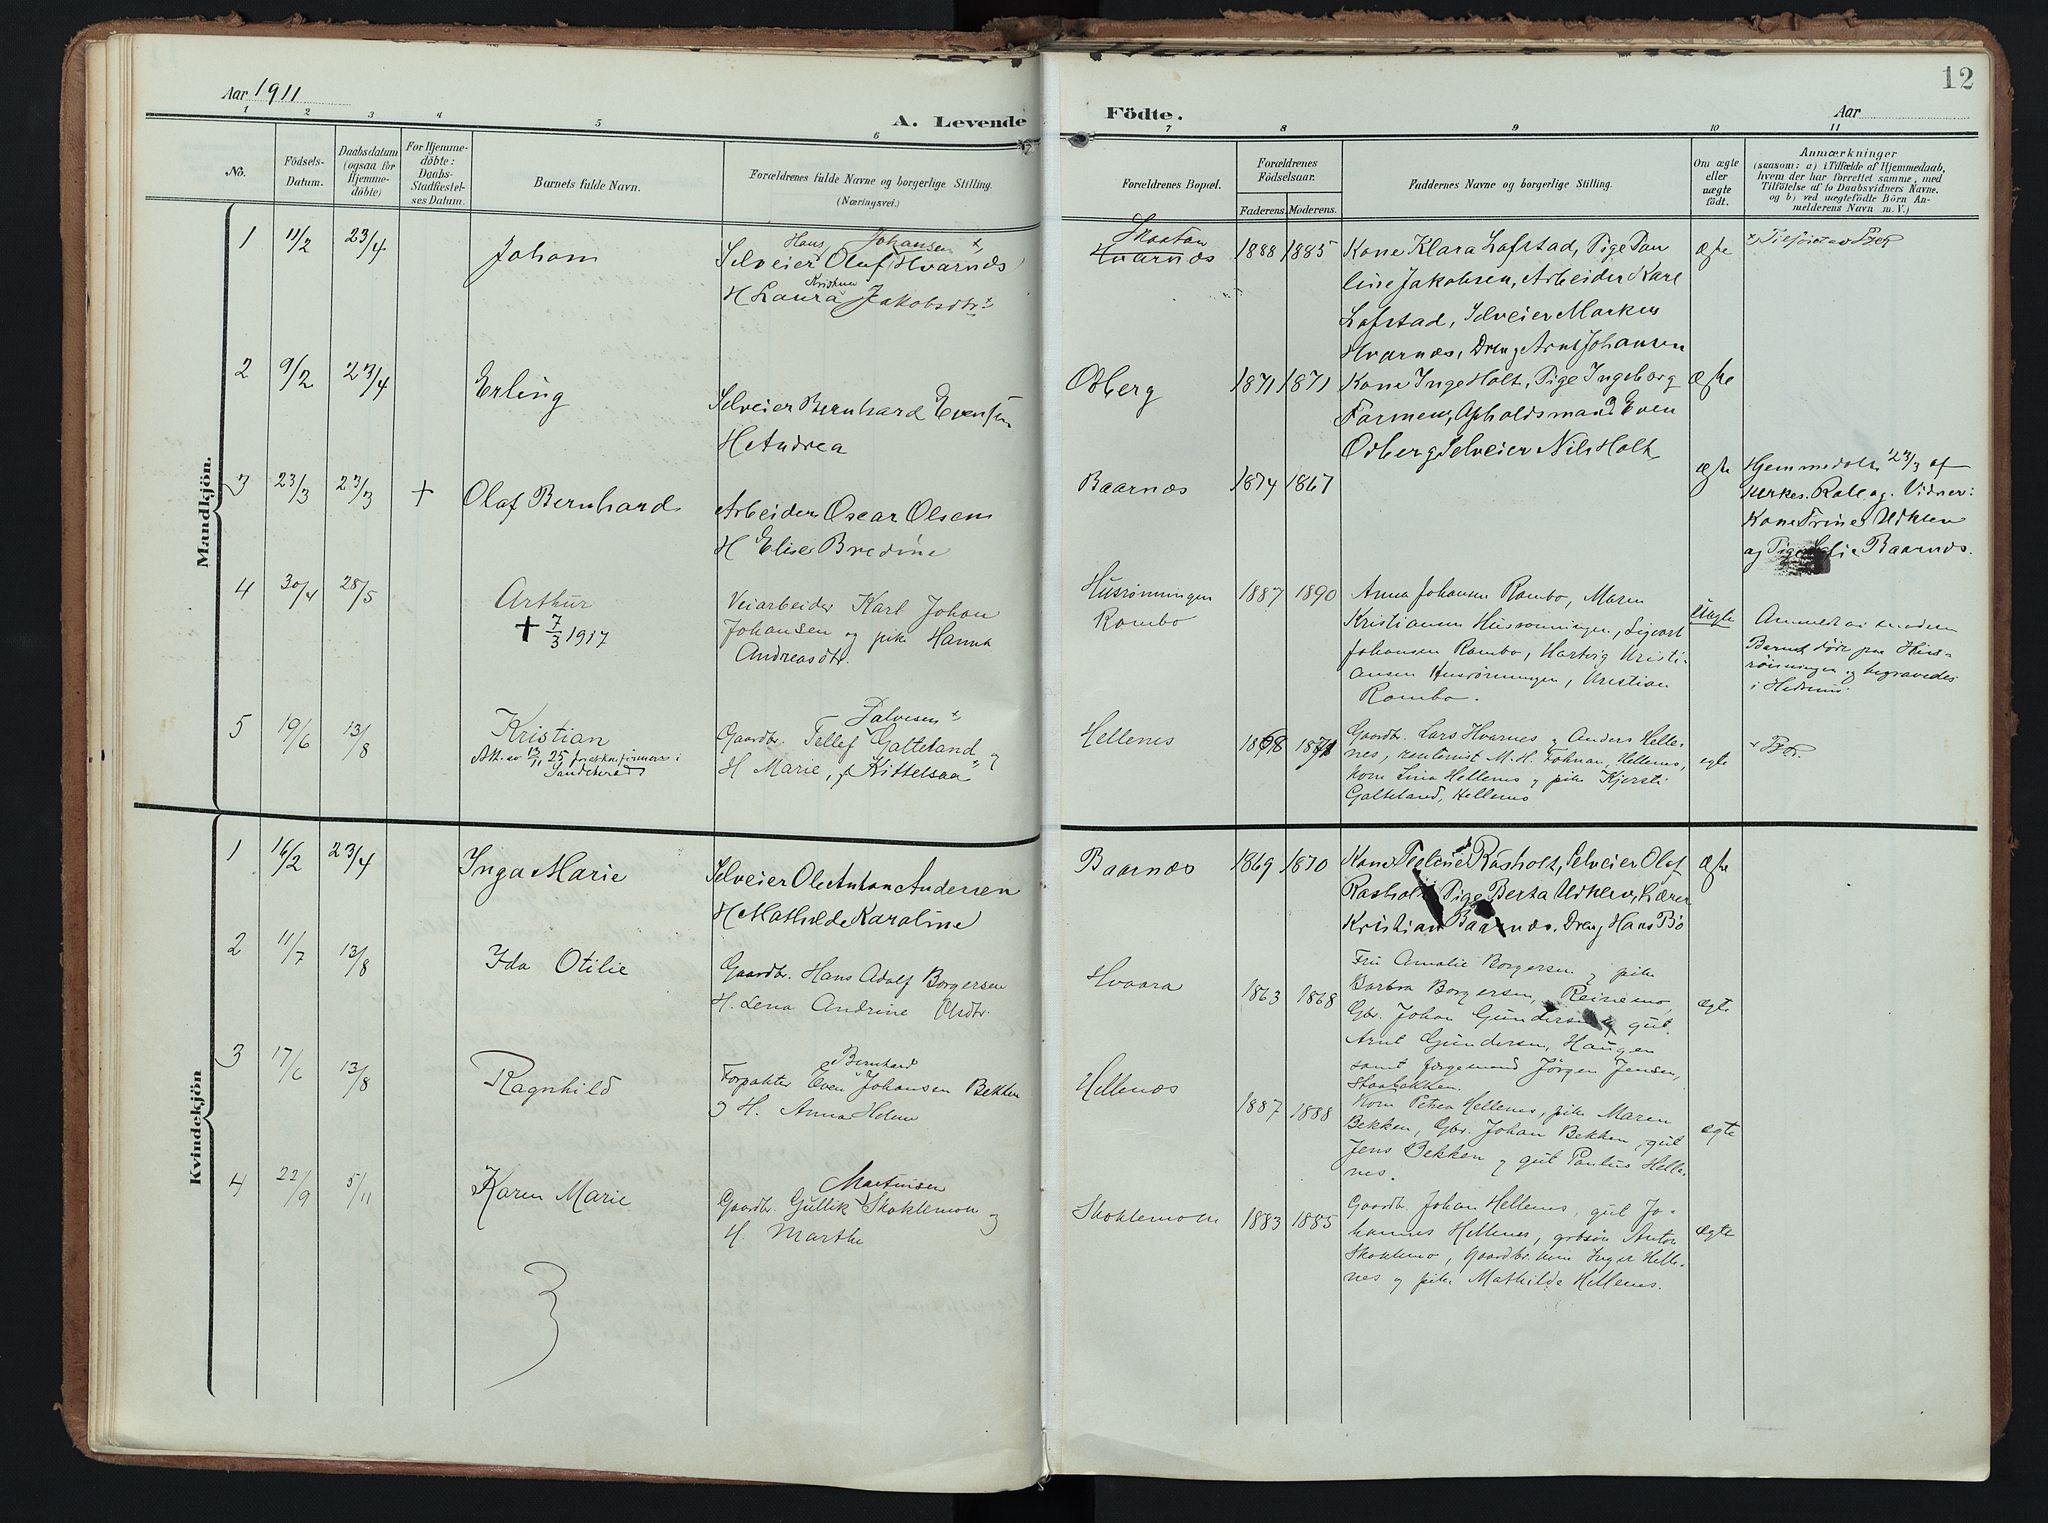 12
Aar 1911
A. Levende Födte.
Aar
1 2 3 4 5 6 7 8 9 10 11
No.
Födsels-
Datum.
Daabsdatum
(ogsaa for
Hjemme-
döbte)
For Hjemme-
döbte:
Daabs-
Stadfæstel-
ses Datum.
Barnets fulde Navn.
Forældrenes fulde Navne og borgerlige Stilling.
(Næringsvei.)
Forældrenes Bopæl.
Forældrenes
Födselsaar.
Faderens. Moderens.
Faddernes Navne og borgerlige Stilling.
Om ægte
eller
uægte
födt.
Anmærkninger
(saasom: a) i Tilfælde af Hjemmedaab,
hvem der har forrettet samme, med
Tilföielse af to Daabsvidners Navne.
og b) ved uægtefödte Börn An-
melderens Navn m. V.)
Mandkjön.
1 11/2 23/4
Johan
Hans Johansen x
Selveier Olaf Hvarnæs
Kristine
H Laura Jakobsdtr x
Skaatan
Hvarnæs
1888 1885
Kone Klara Lofstad, Pige Pau
line Jakobsen, Arbeider Karl
Lofstad, Selveier Markus
Hvarnæs, Dreng Arnt Johansen
ægte
x Tilföiet av
2 9/2 23/4
Erling
Selveier Bernhard Evensen
H Andrea
Odberg
1871 1871
Kone Inge Holt, Pige Ingeborg
Farmen, Opholdsmand Even
Odberg Selveier Nils Holt
ægte
3 23/3 23/3 +
Olaf Bernhard
Arbeider Oscar Olsen
H Elise Bredine
Baarnæs
1874 1867
ægte
Hjemmedöbt 23/3 af
Kirkes. Vidner:
Kone Trine Udklev
og Pige Baarnæs.
4 30/4 28/5
Arthur
+ 7/3 1917
Veiarbeider Karl Johan
Johansen og pike Hanna
Andreasdtr.
Husrønningen
Rombo
1887 1890
Anna Johansen Rombo, Maren
Kristiansen Husrønningen, Sigvart
Johansen Rombo, Hartvig Kristi-
ansen Husrønningen, Kristian
Rombo.
Uægte
Anmeldt av moderen
Barnet døde paa Hus-
rønningen og begravedes
i Hedrum
5 19/6 13/8
Kristian
Att. av 13/11 25 for at konfirmeres i
Sandeherad
Salvesen x
Gaardbr. Tellef Galteland og
H Marie, f Kittelsaa x
Hellenes
1868 1871
Gaardbr. Lars Hvarnes og Anders Helle-
nes, rentenist M. H. Hellenes,
kone Lina Hellenes og pike Kjersti
Galteland, Hellenes
egte
x
Kvindekjön
1 16/2 23/4
Inga Marie
Selveier Ole Anton Andersen
H Mathilde Karoline
Baarnæs
1869 1870
Kone Rasholt, Selveier Olaf
Rasholt Pige Berta Udklev, Lærer
Kristian Baarnæs, Dreng Hans Bö
ægte
2 11/7 13/8
Ida Otilie
Gaardbr. Hans Adolf Borgersen
H. Lena Andrine Olsdtr.
Hvaara
1863 1868
Fru Amalie Borgersen og pike
Barbra Borgersen, Reinemo,
Gbr. Johan Gundersen og gut
Arnt Gundersen, Haugen
samt færgemand Jørgen Jensen,
Skaabekken.
egte
3 17/6 13/8
Ragnhild
Bernhard
Forpakter Even Johansen Bekken
og H. Anna Helene
Hellenæs
1887 1888
Kone Petra Hellenes, pike Maren
Bekken, Gbr. Johan Bekken, gut
Jens Bekken og gut Paulus Helle-
nes.
ægte
4 22/9 5/11
Karen Marie
Martinsen
Gaardbr. Gullik Skoklemoen og
H. Marthe
Skoklemoen
1883 1885
Gaardbr. Johan Hellenes, gut Jo-
hannes Hellenes, gbrsön Anton
Skoklemo, Gaardbr. kone Inger Helle-
nes og pike Mathilde Hellenes.
ægte
3